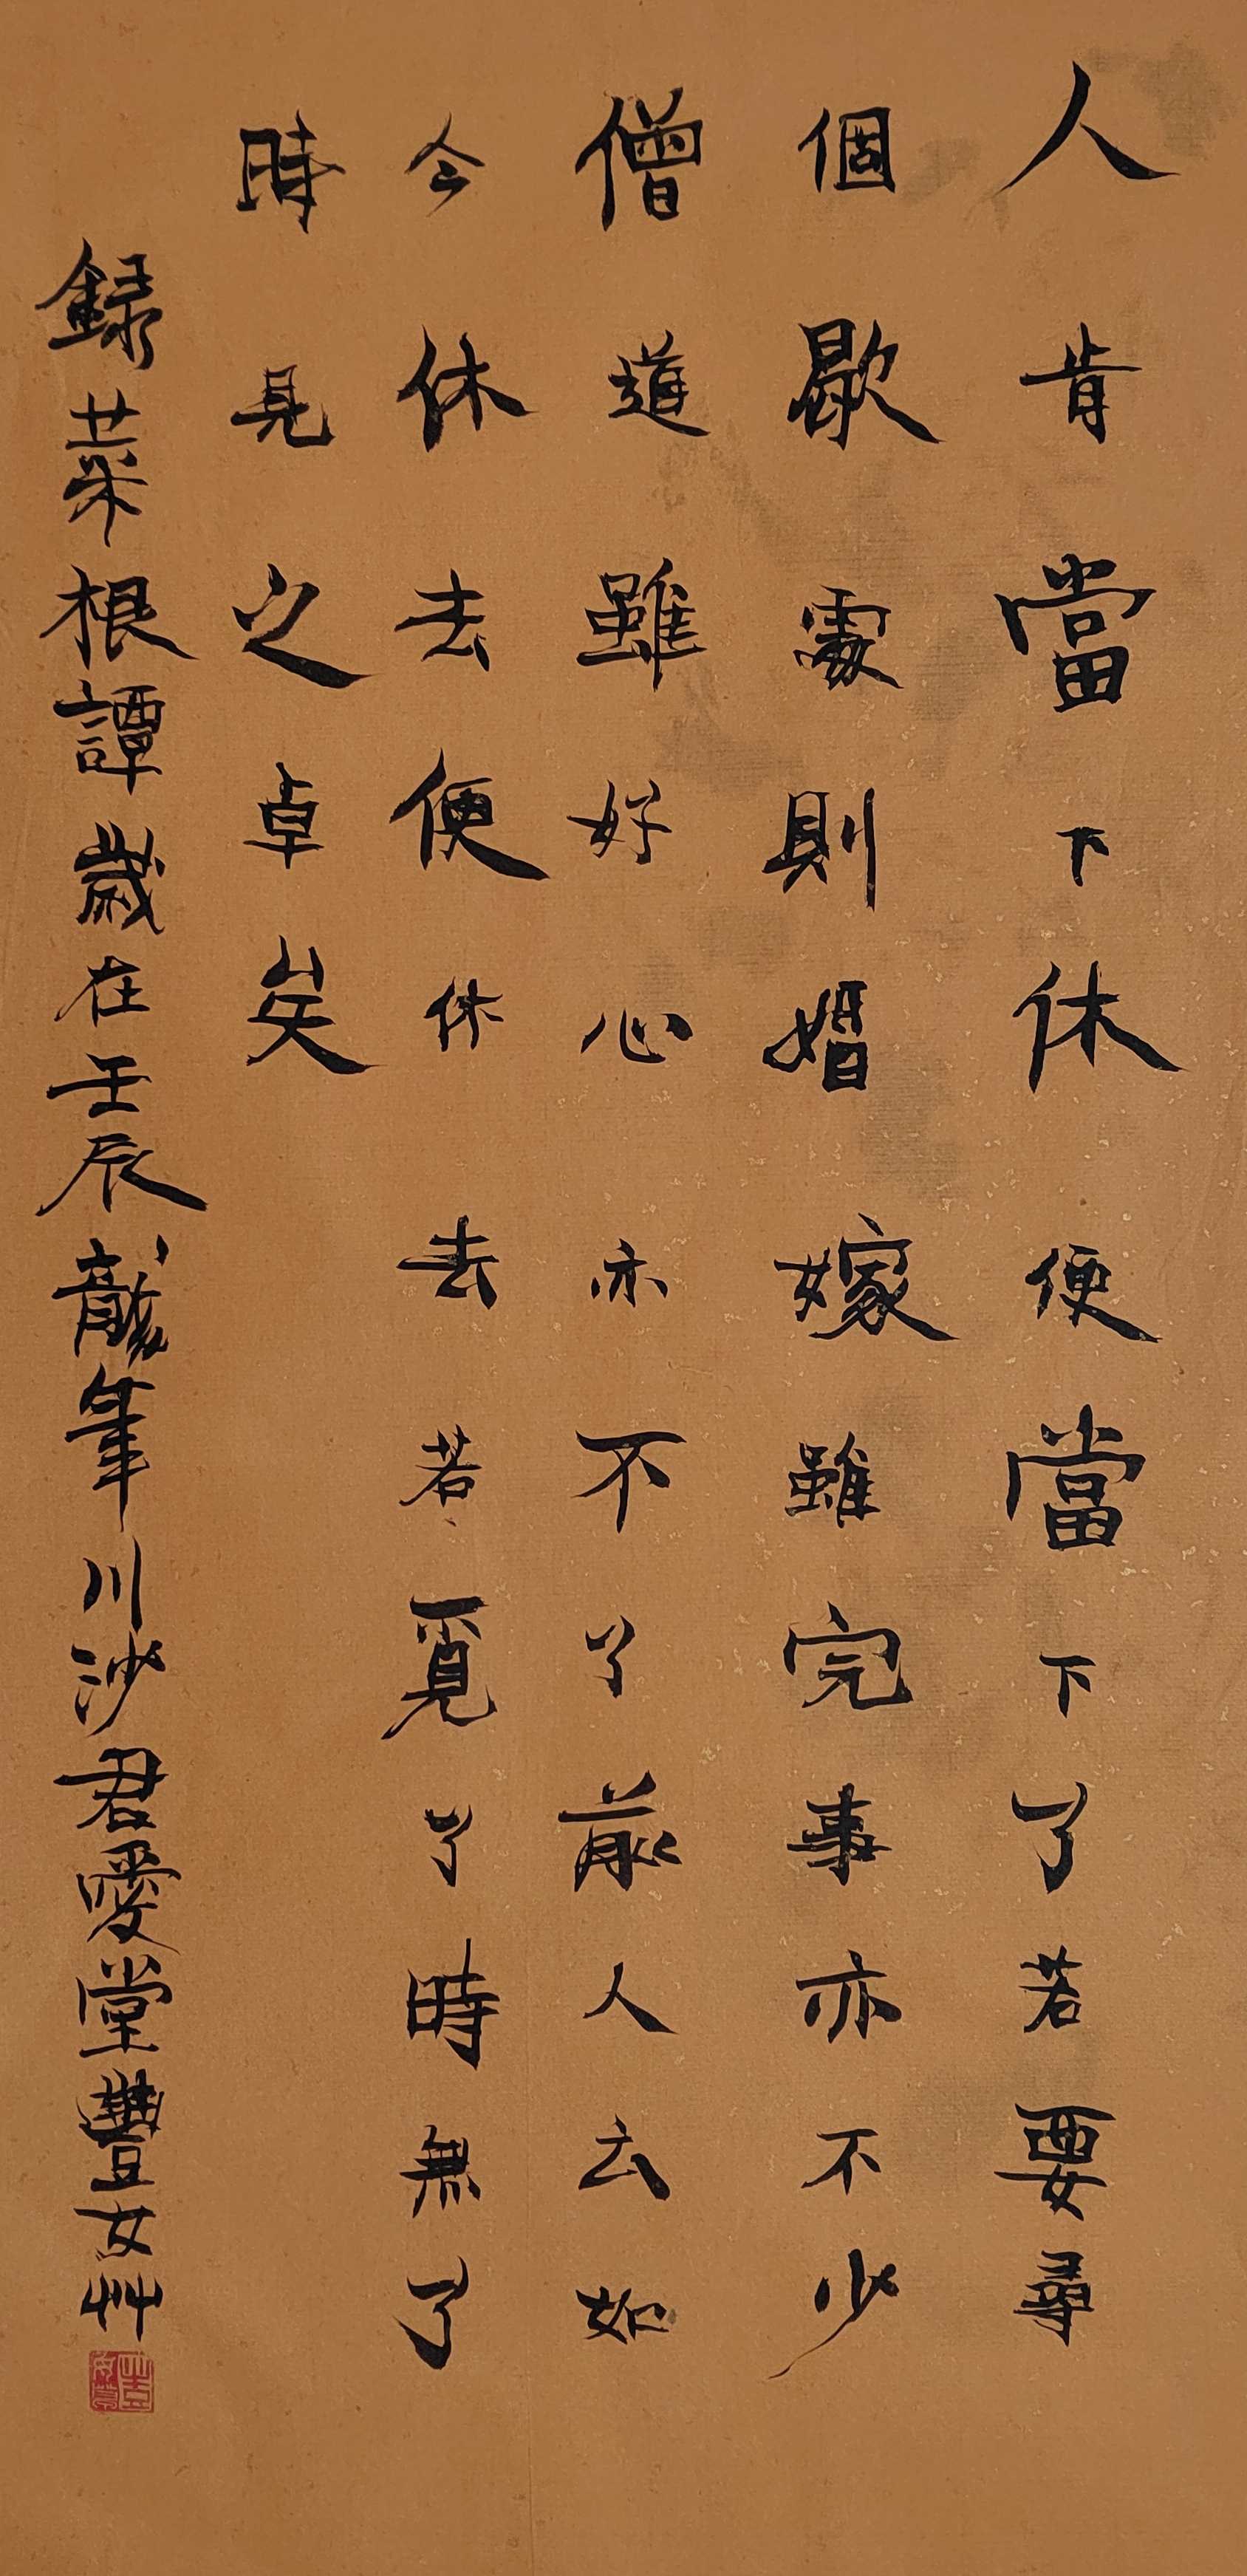 人肯當下休便當下了若要尋
個歇處則婚嫁雖完事亦不少
僧道雖好心亦不了前人云如
今休去便休去若覓了時無了
時見之卓矣
録菜根譚歲在壬辰龍年川沙君愛堂豐女艸